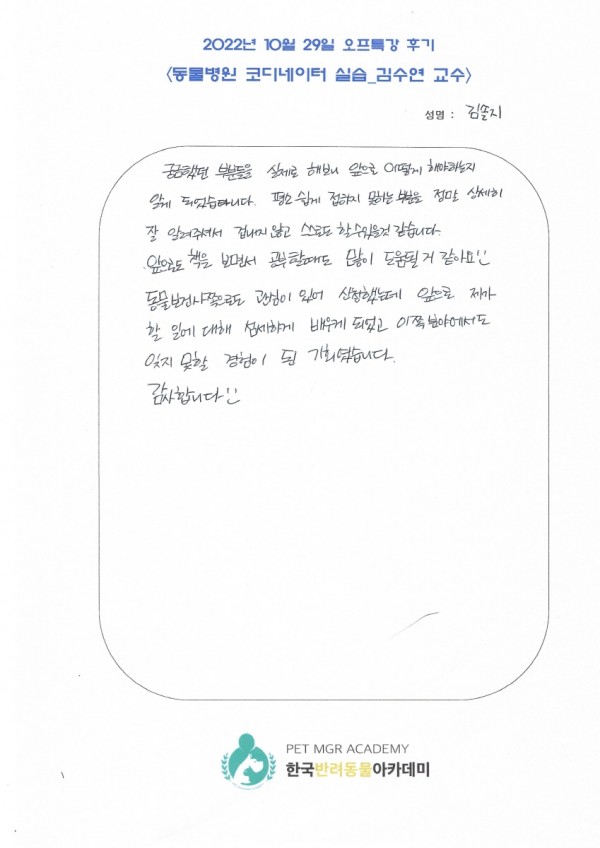 2022년 10월 29일 오프특강 후기
<동물병원 코디네이터 실습_김수연 교수>
성명 : 김솔지
궁금했던 부분들을 실제로 해보니 앞으로 어떻게 해야하는지
알게 되었습니다. 평소 쉽게 접하지 못하는 부분을 정말 상세히
잘 알려주셔서 겁내지 않고 스스로도 할수있을것 같습니다.
앞으로도 책을 보면서 공부할때도 많이 도움될 거 같아요!!
동물보건사쪽으로도 관심이 있어 신청했는데 앞으로 제가
할 일에 대해 섬세하게 배우게 되었고 이쪽 분야에서도
잊지 못할 경험이 된 기회였습니다.
감사합니다!!
PET MGR ACADEMY
한국반려동물아카데미